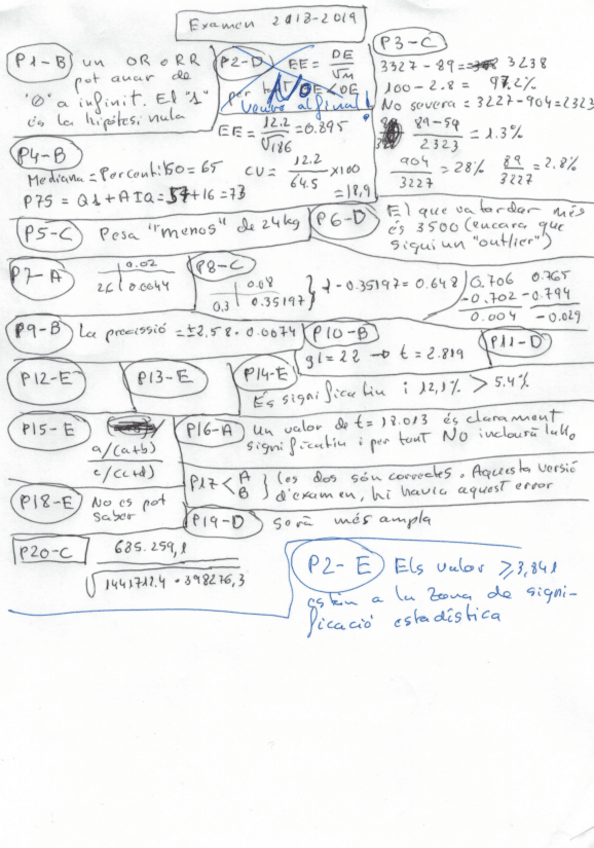 Examen 2018-2019
P1-B un OR o RR
pot anar de
"0" a infinit. El "1"
és la hipótesi nula
P2-D EE = DE/√n
per tant EE < DE
No
veure al final!
EE = 12.2/√186 = 0.895
P3-C
3327 - 89 = 3238
100 - 2.8 = 97.2%
No severa = 3227 - 904 = 2323
89-59/2323 = 1.3%
904/3227 = 28% 89/3227 = 2.8%
P4-B
Mediana = Percentil 50 = 65
P75 = Q1 + AIQ = 57 + 16 = 73
CV = 12.2/64.5 x100
= 18,9
P5-C Pesa "menos" de 24kg
P6-D El que va tardar més
és 3500 (encara que
sigui un "outlier")
P7-A 0.02
2.6 0.0044
P8-C 0.08
0.3 0.35197 } 1 - 0.35197 = 0.648
0.706 0.765
-0.702 -0.794
0.004 -0.029
P9-B La precissió = ±2,58 · 0.0074
P10-B
gl = 22 → t = 2.819
P11-D
P12-E
P13-E
P14-E
És significatiu i 12,1% > 5.4%
P15-E
a/(a+b)
c/(c+d)
P16-A Un valor de t = 18.013 és clarament
significatiu i per tant NO inclourà l'u
P17 < A B } (es dos són correctes. Aquesta versió
d'examen, hi havia aquest error
P18-E No es pot
saber
P19-D serà més ampla
P20-C 685.259,1
√1441712.4 · 398276,3
P2-E Els valor ≥ 3,841
están a la zona de signi-
ficació estadística